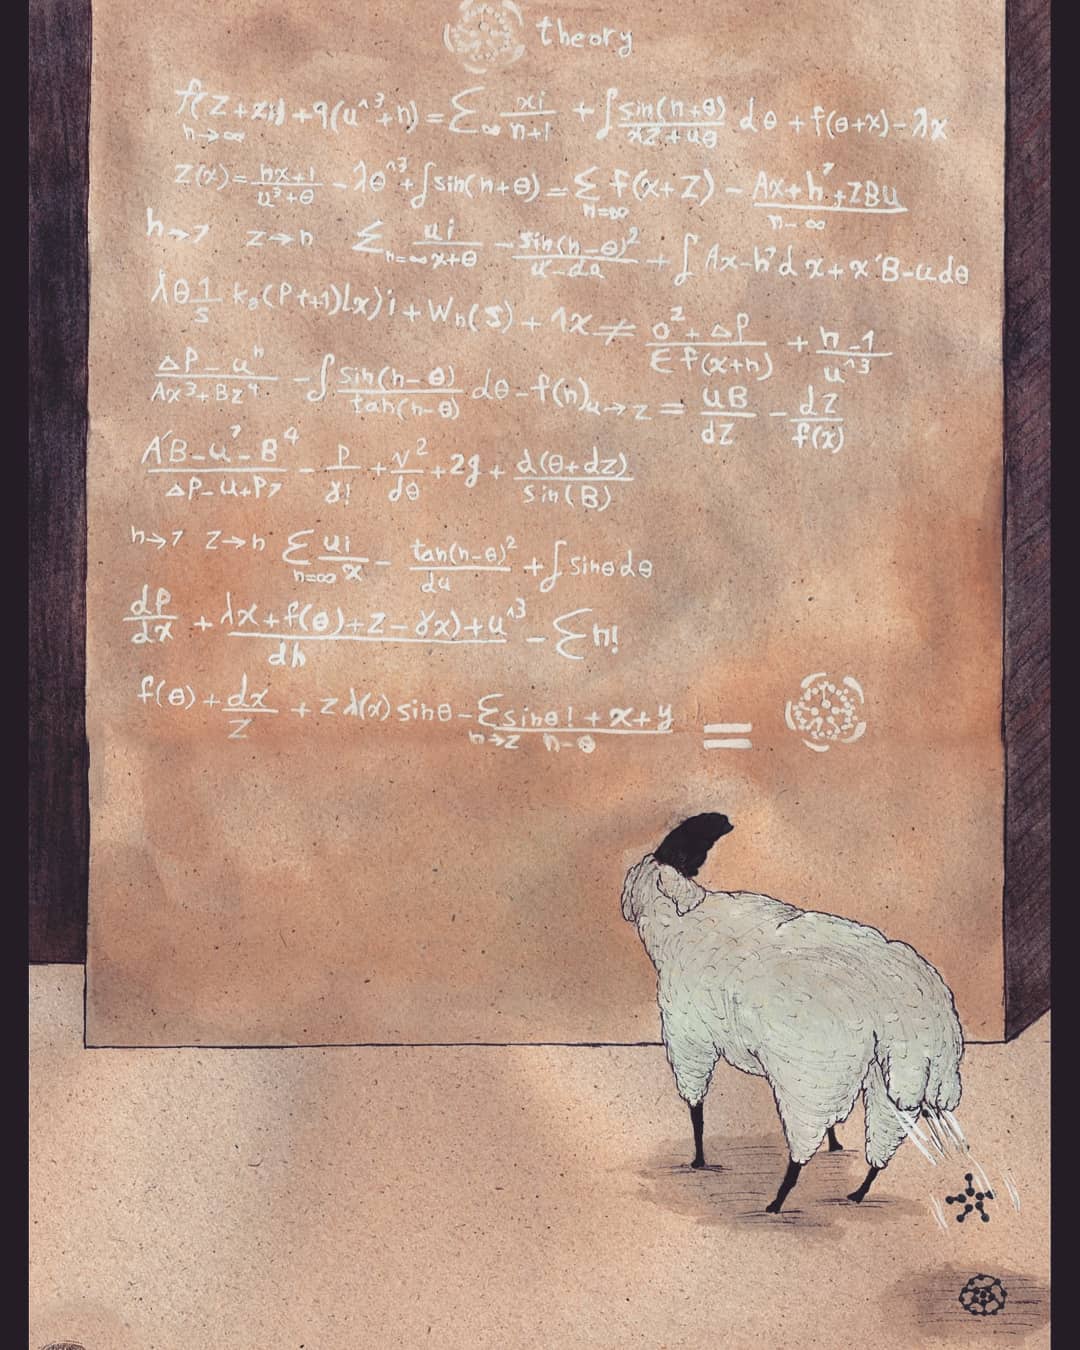 theory
f(z+zi)+9(u^3+n) = Σ∞ xi/n+1 + ∫ sin(n+θ)/xz+uθ dθ + f(θ+x) - λx
n→∞
z(x) = hx+1/u³+θ - λθ^3 + ∫ sin(n+θ) = Σ n=∞ f(x+z) - Ax+h^7+ZBu/n-∞
h→7 z→n Σ n=∞ ui/x+θ - sin(n-θ)²/u-da + ∫ Ax-h^7dx+x'B-udθ
λθ 1/s k₀(P++1)Lx)i + Wn(s) + 1x ≠ o²+ΔP/Σf(x+n) + n-1/u^3
ΔP-u^n/Ax³+Bz⁴ - ∫ sin(n-θ)/tan(n-θ) dθ - f(n)u→z = uB/dz - dz/f(x)
A'B-u^7-B⁴/ΔP-u+P7 - P/γ! + v²/dθ + 2g + d(θ+dz)/sin(B)
h→7 z→n Σ n=∞ ui/x - tan(n-θ)²/du + ∫ sinθdθ
dP/dx + λx+f(θ)+z-γx)+u^3/dh - Σn!
f(θ) + dx/z + zλ(x) sinθ - Σ n→z sinθ!+x+y/n-θ =